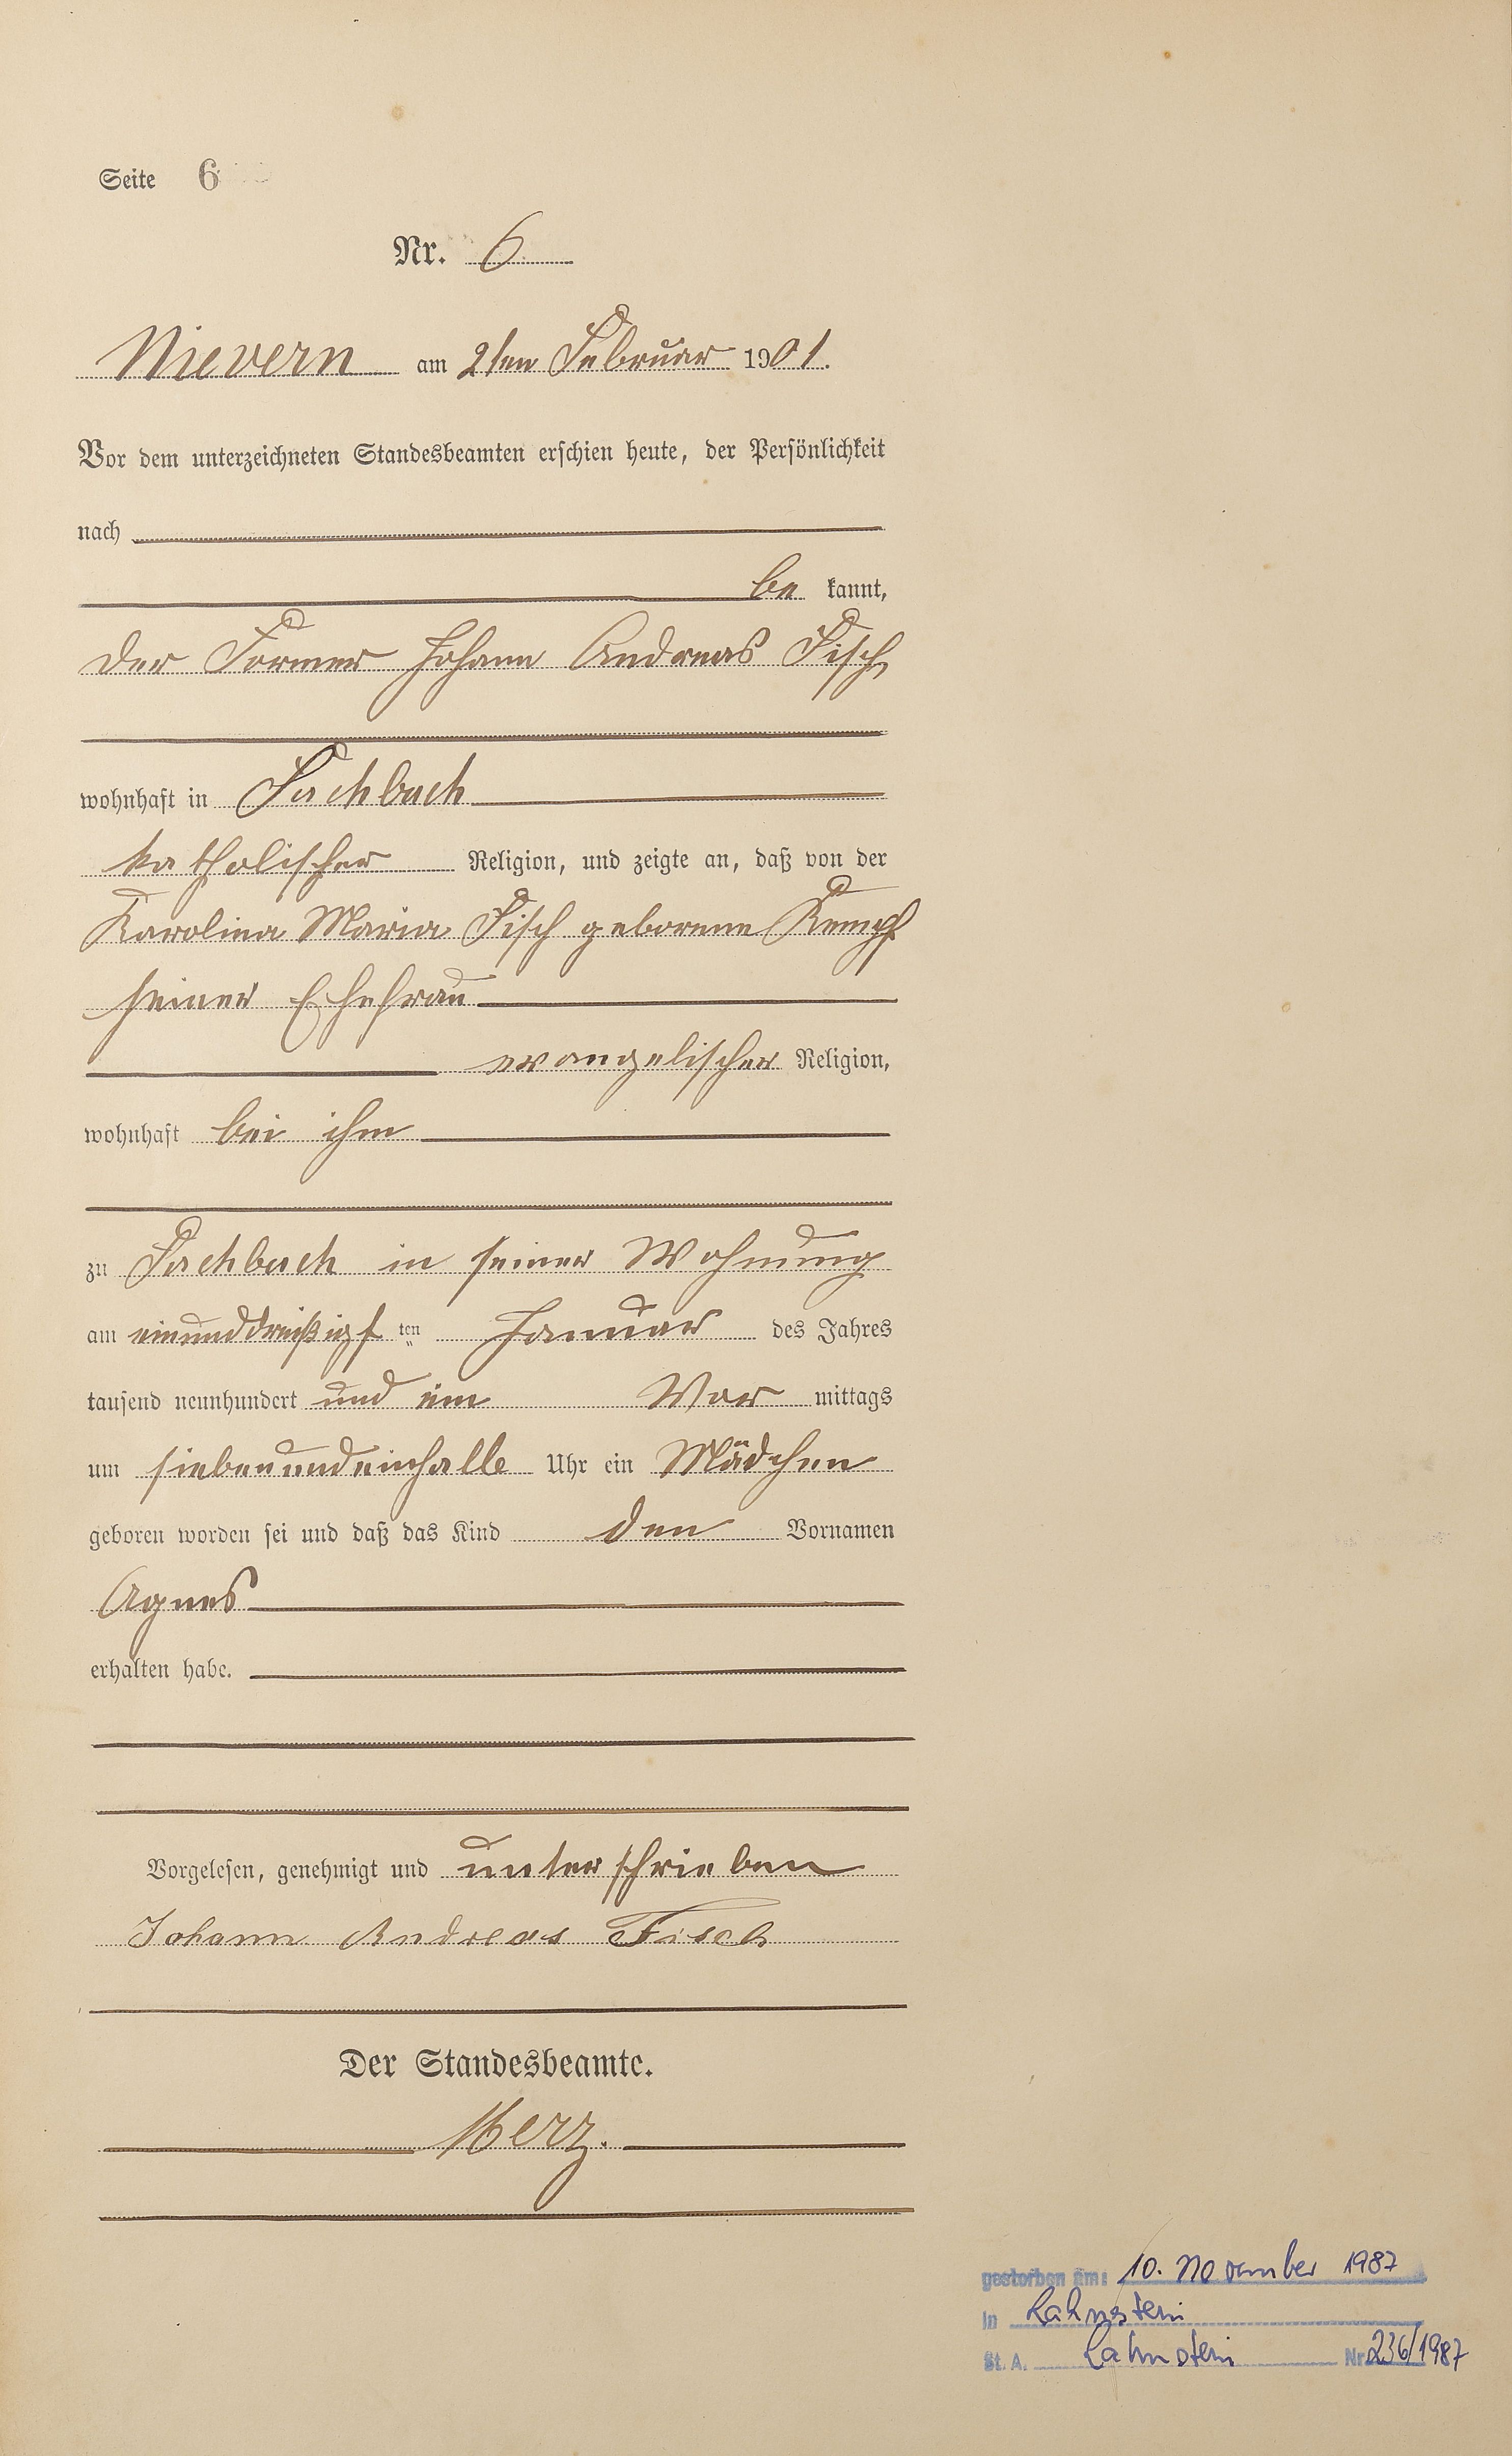 Seite 6
Nr. 6
Nievern am 2ten Februar 1901.
Vor dem unterzeichneten Standesbeamten erschien heute, der Persönlichkeit
nach
be kannt,
der Former Johann Andreas Fisch,
wohnhaft in Fachbach
katholischer Religion, und zeigte an, daß von der
Karolina Maria Fisch geborene Kempf
seiner Ehefrau
evangelischer Religion,
wohnhaft bei ihm
zu Fachbach in seiner Wohnung
am einunddreißigsten Januar des Jahres
tausend neunhundert und ein Vor mittags
um siebenundeinhalb Uhr ein Mädchen
geboren worden sei und daß das Kind den Vornamen
Agnes
erhalten habe.
Vorgelesen, genehmigt und unterschrieben
Johann Andreas Fisch
Der Standesbeamte.
Merz.
gestorben am: 10. November 1987
in Lahnstein
St. A. Lahnstein Nr. 236/1987